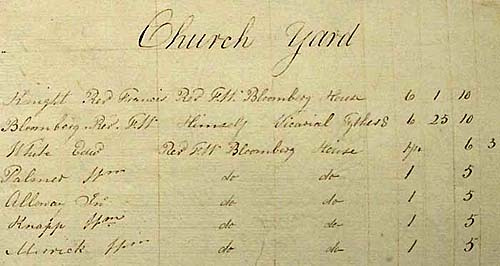 Church Yard
Knight Revd Francis Revd F.W. Bloomberg House 6 1 10
Bloomberg Rev. F.W. Himself Vicarial Tythes 6 25 10
White Edwd Revd F.W. Bloomberg House 6 3
Palmer do do 1 5
Alloway do do 1 5
Knapp do do 1 5
Merrick do do 1 5